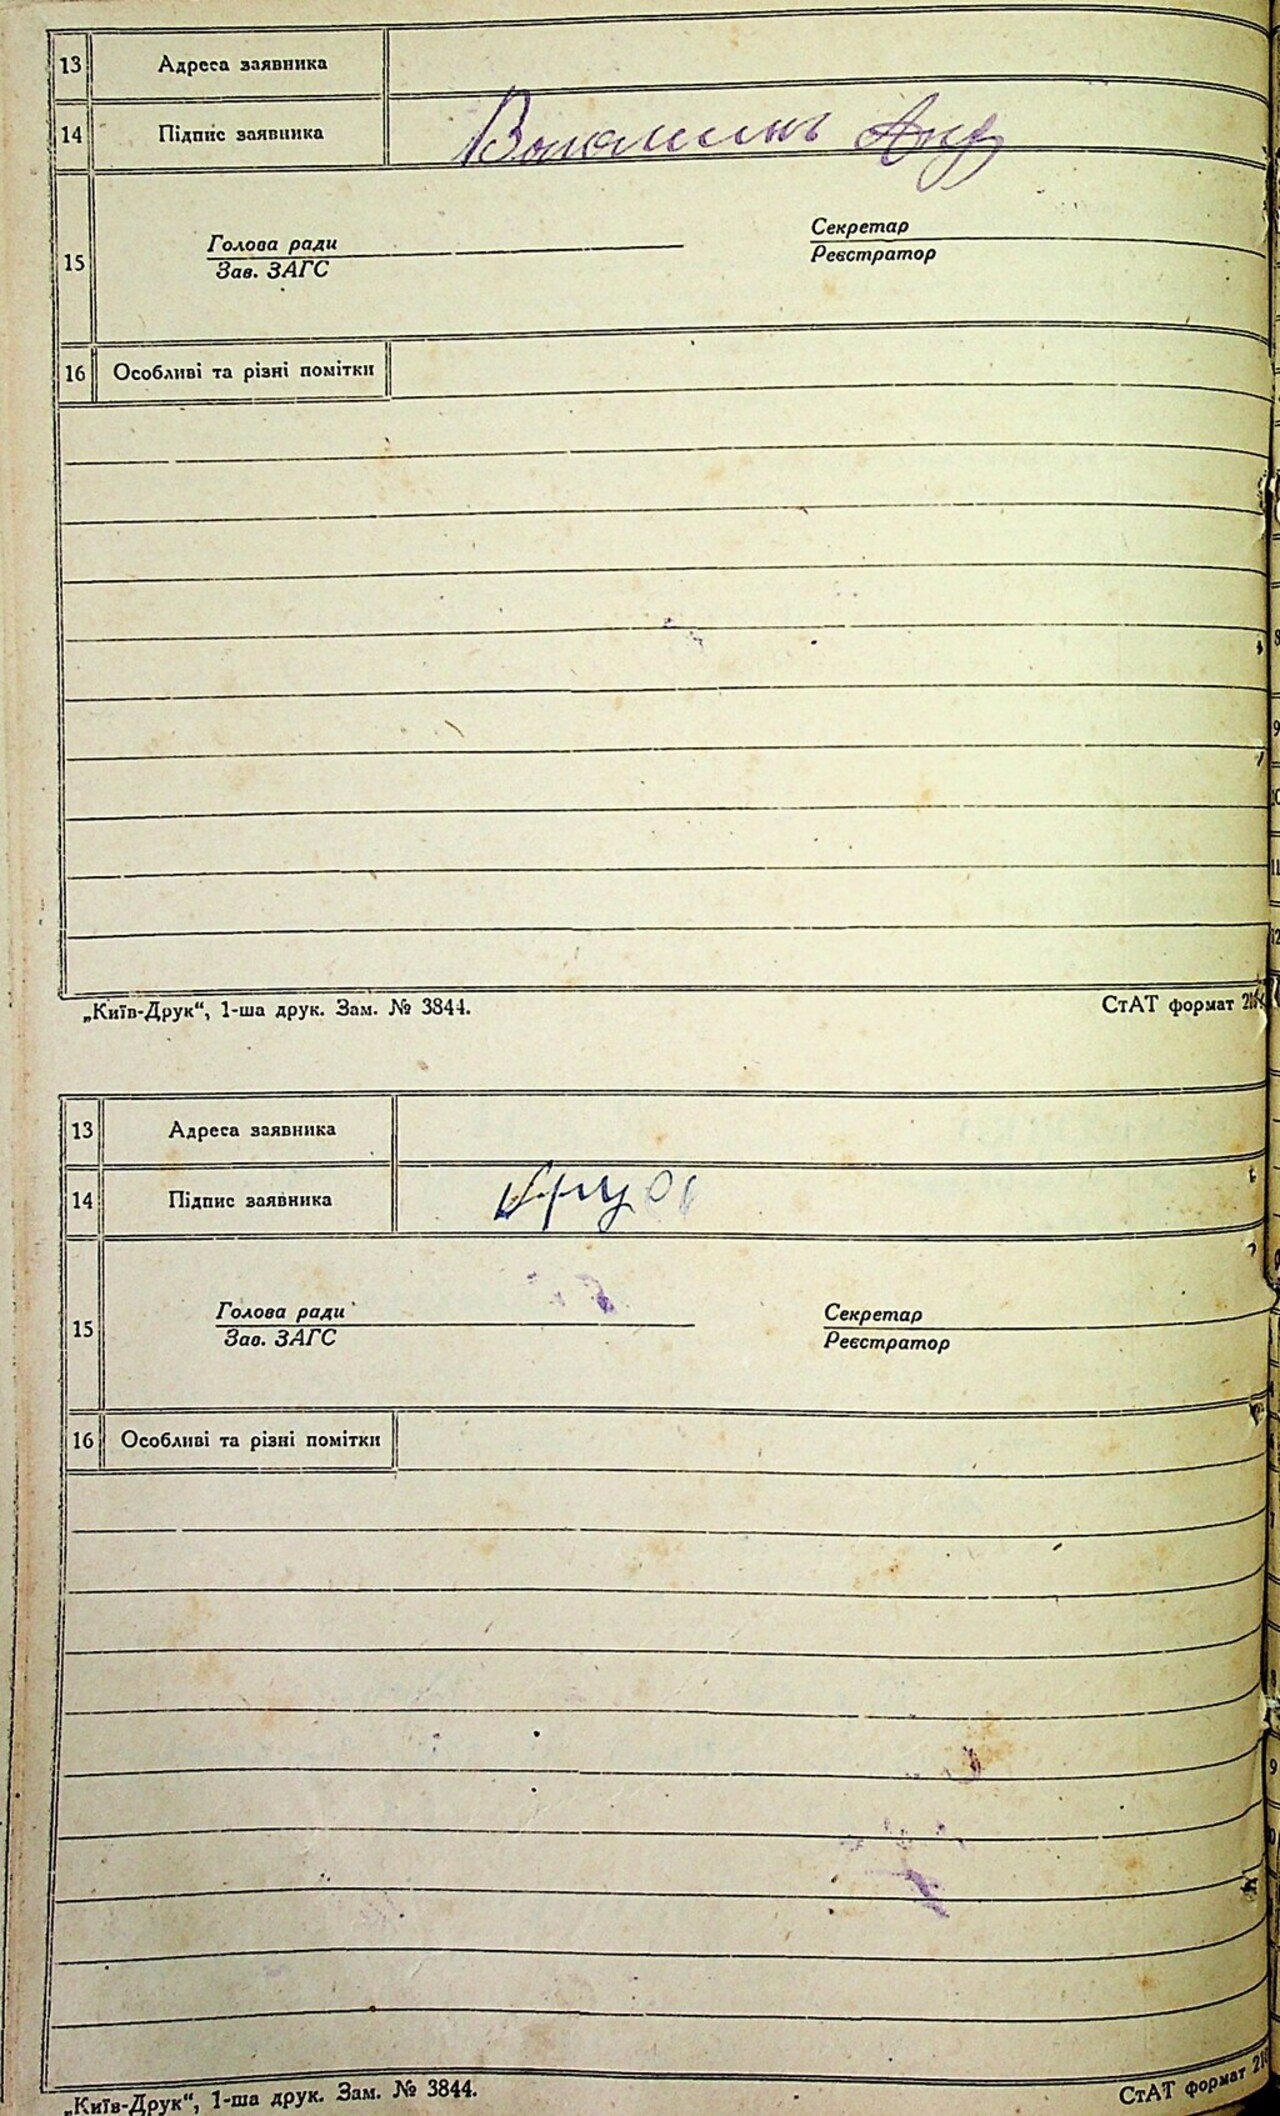 13 Адреса заявника
14 Підпис заявника
15 Голова ради Секретар
Зав. ЗАГС Реєстратор
16 Особливі та різні помітки
„Київ-Друк“, 1-ша друк. Зам. № 3844. СтАТ формат
13 Адреса заявника
14 Підпис заявника
15 Голова ради Секретар
Зав. ЗАГС Реєстратор
16 Особливі та різні помітки
„Київ-Друк“, 1-ша друк. Зам. № 3844. СтАТ формат